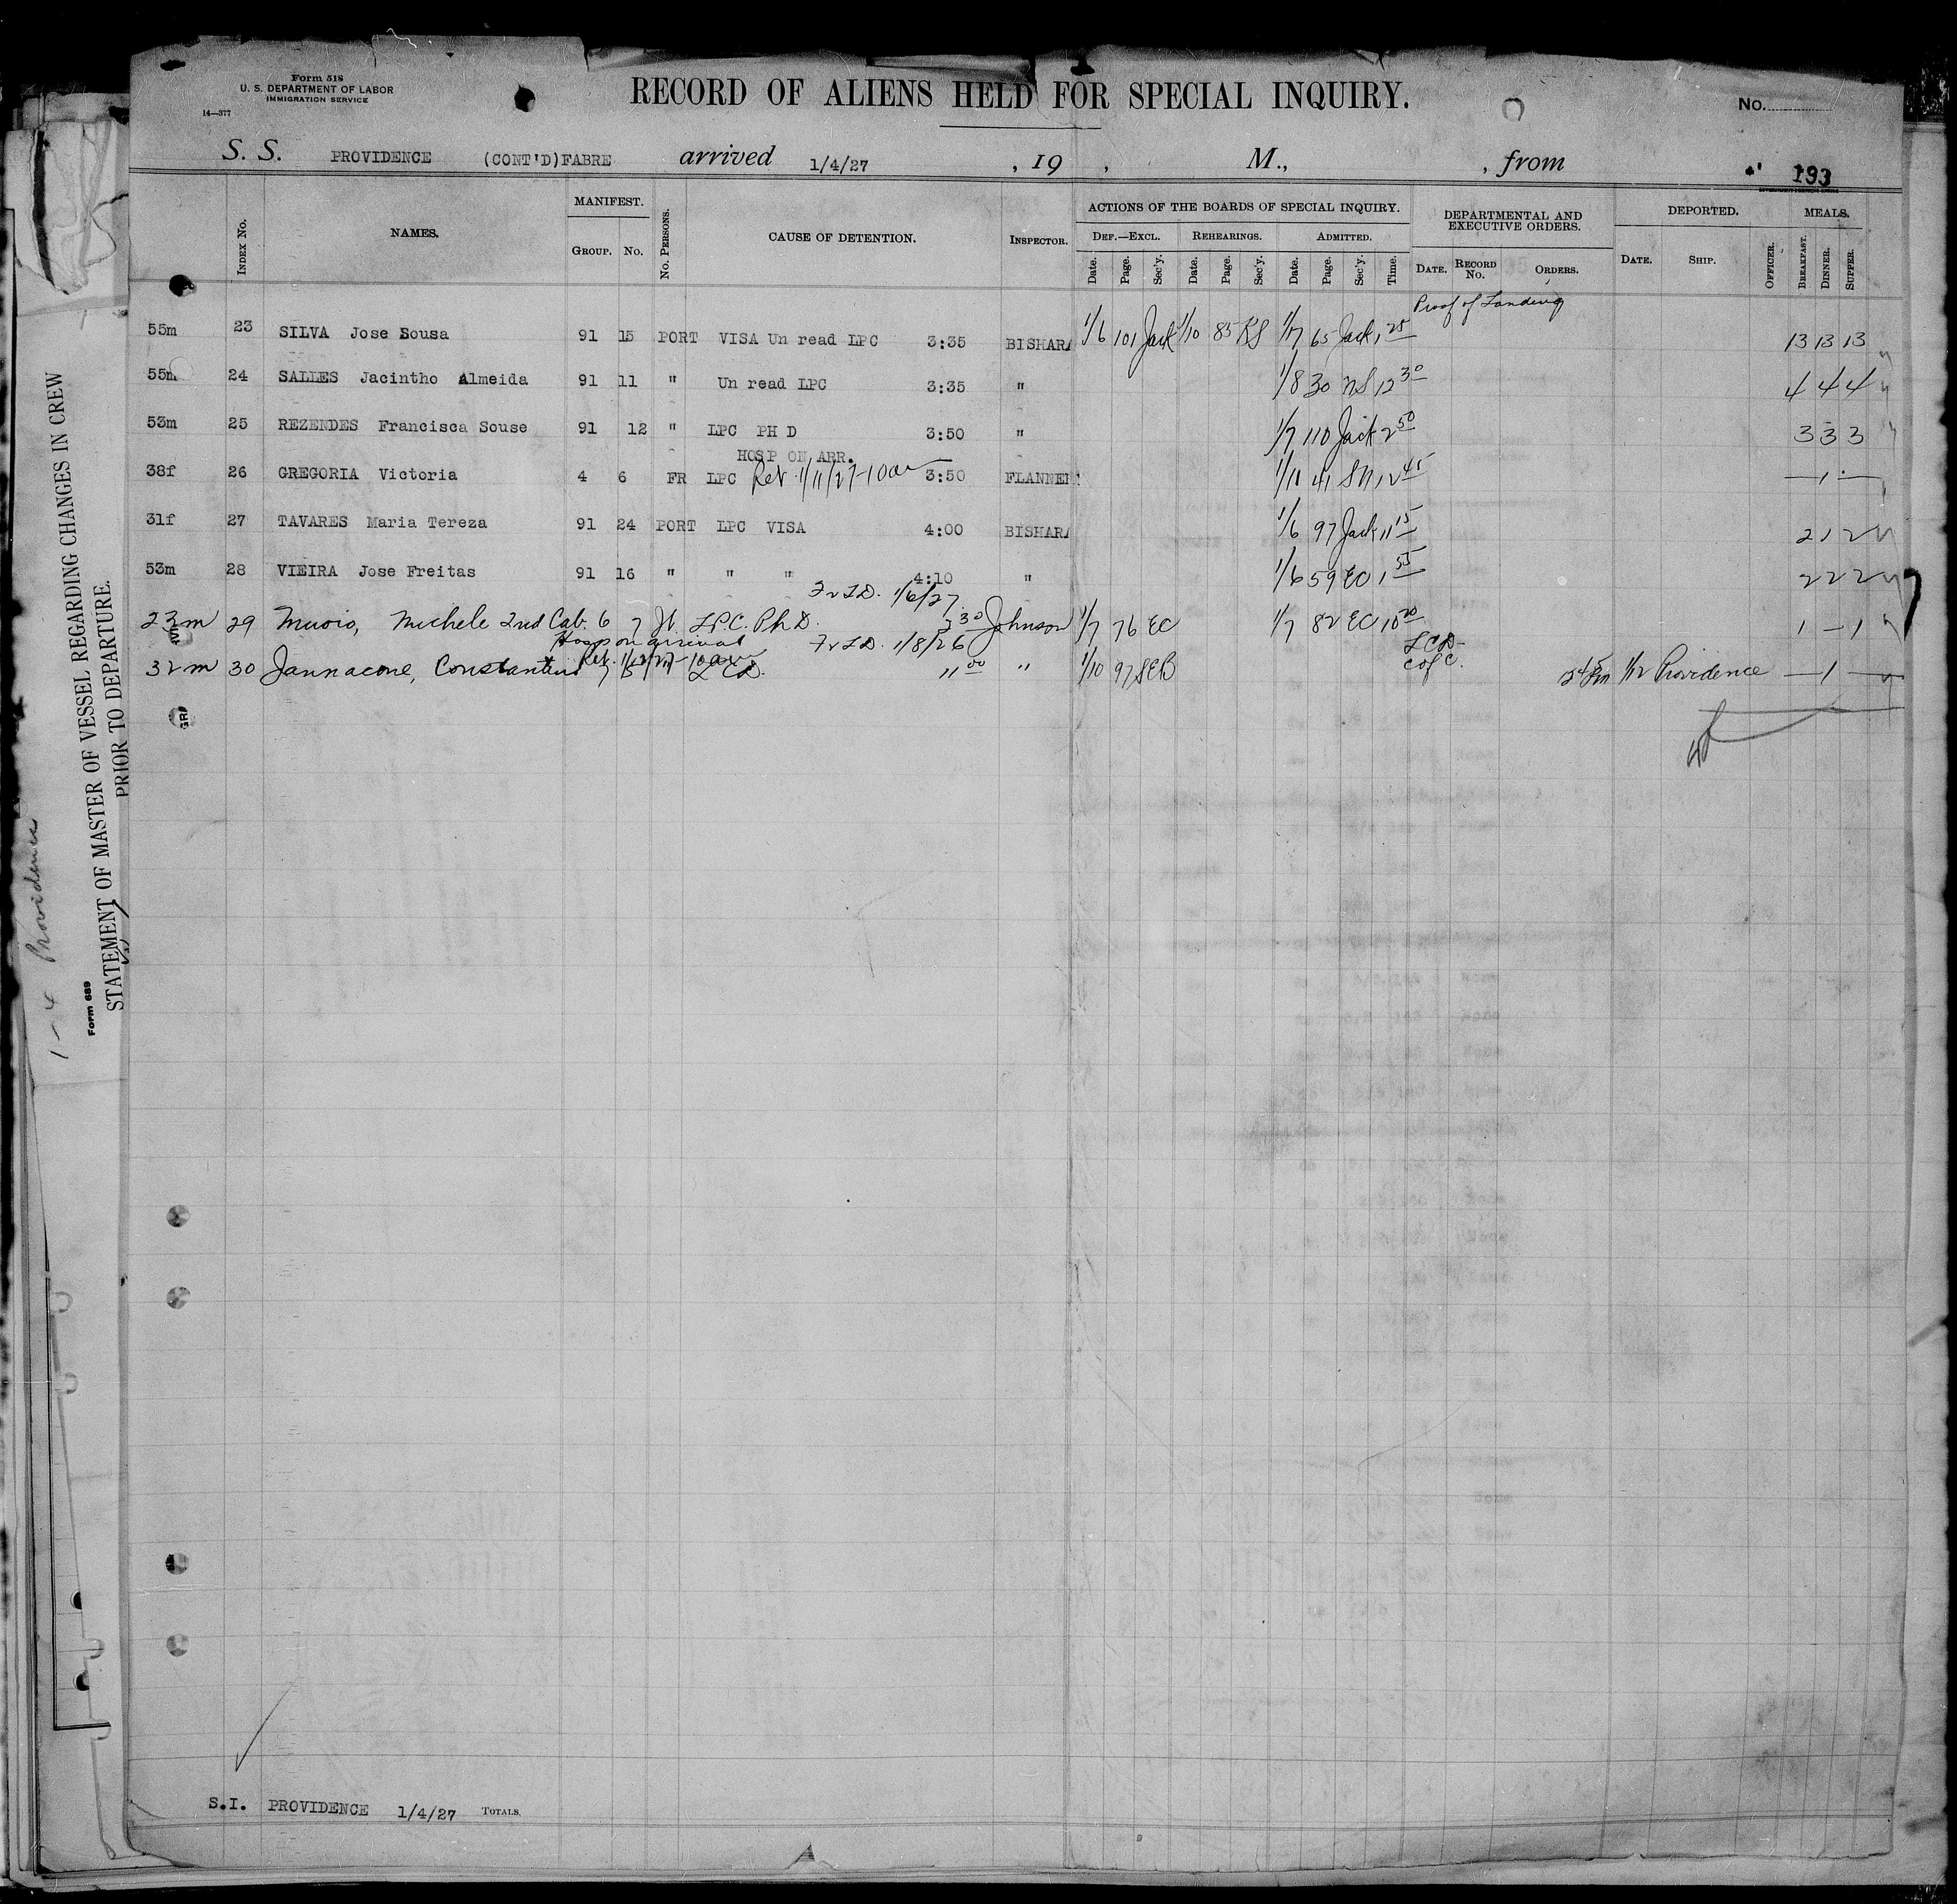 Form 518
U. S. DEPARTMENT OF LABOR
IMMIGRATION SERVICE
14—377
RECORD OF ALIENS HELD FOR SPECIAL INQUIRY.
No.
S. S. PROVIDENCE (CONT'D) FABRE arrived 1/4/27 , 19 , M., , from
193
INDEX No. NAMES. MANIFEST. GROUP. No. No. PERSONS. CAUSE OF DETENTION. INSPECTOR. ACTIONS OF THE BOARDS OF SPECIAL INQUIRY. DEF.—EXCL. Date. Page. Sec'y. REHEARINGS. Date. Page. Sec'y. ADMITTED. Date. Page. Sec'y. Time. DEPARTMENTAL AND EXECUTIVE ORDERS. DATE. RECORD No. ORDERS. DEPORTED. DATE. SHIP. OFFICER. MEALS. BREAKFAST. DINNER. SUPPER.
Proof of Landing
55m 23 SILVA Jose Sousa 91 15 PORT VISA Un read LPC 3:35 BISHARA 1/6 101 Jack 1/10 85 RS 1/17 65 Jack 1 25 13 13 13
55m 24 SALLES Jacintho Almeida 91 11 " Un read LPC 3:35 " 1/8 30 NS 12 30 4 4 4
53m 25 REZENDES Francisca Souse 91 12 " LPC PH D 3:50 " 1/7 110 Jack 2 50 3 3 3
HOSP ON ARR.
38f 26 GREGORIA Victoria 4 6 FR LPC Ret 1/11/27-10am 3:50 FLANNER 1/11 41 12 45 — 1 —
31f 27 TAVARES Maria Tereza 91 24 PORT LPC VISA 4:00 BISHARA 1/6 97 Jack 11 15 2 1 2
53m 28 VIEIRA Jose Freitas 91 16 " " " 4:10 " 1/6 59 EC 1 55 2 2 2
1/6/27
23m 29 Muoio, Michele 2nd Cab. 6 7 It L.P.C. Ph D. 3 30 Johnson 1/7 76 EC 1/7 82 EC 10 20 1 — 1
Hosp on arrival 1/8/26
LCD
C of C.
32m 30 Jannacone, Constantino 7 LCD. 11 00 " 1/10 97 SEB 1/12 Providence — 1 —
S.I. PROVIDENCE 1/4/27 TOTALS.
1-4 Providence
Form 689
STATEMENT OF MASTER OF VESSEL REGARDING CHANGES IN CREW
PRIOR TO DEPARTURE.